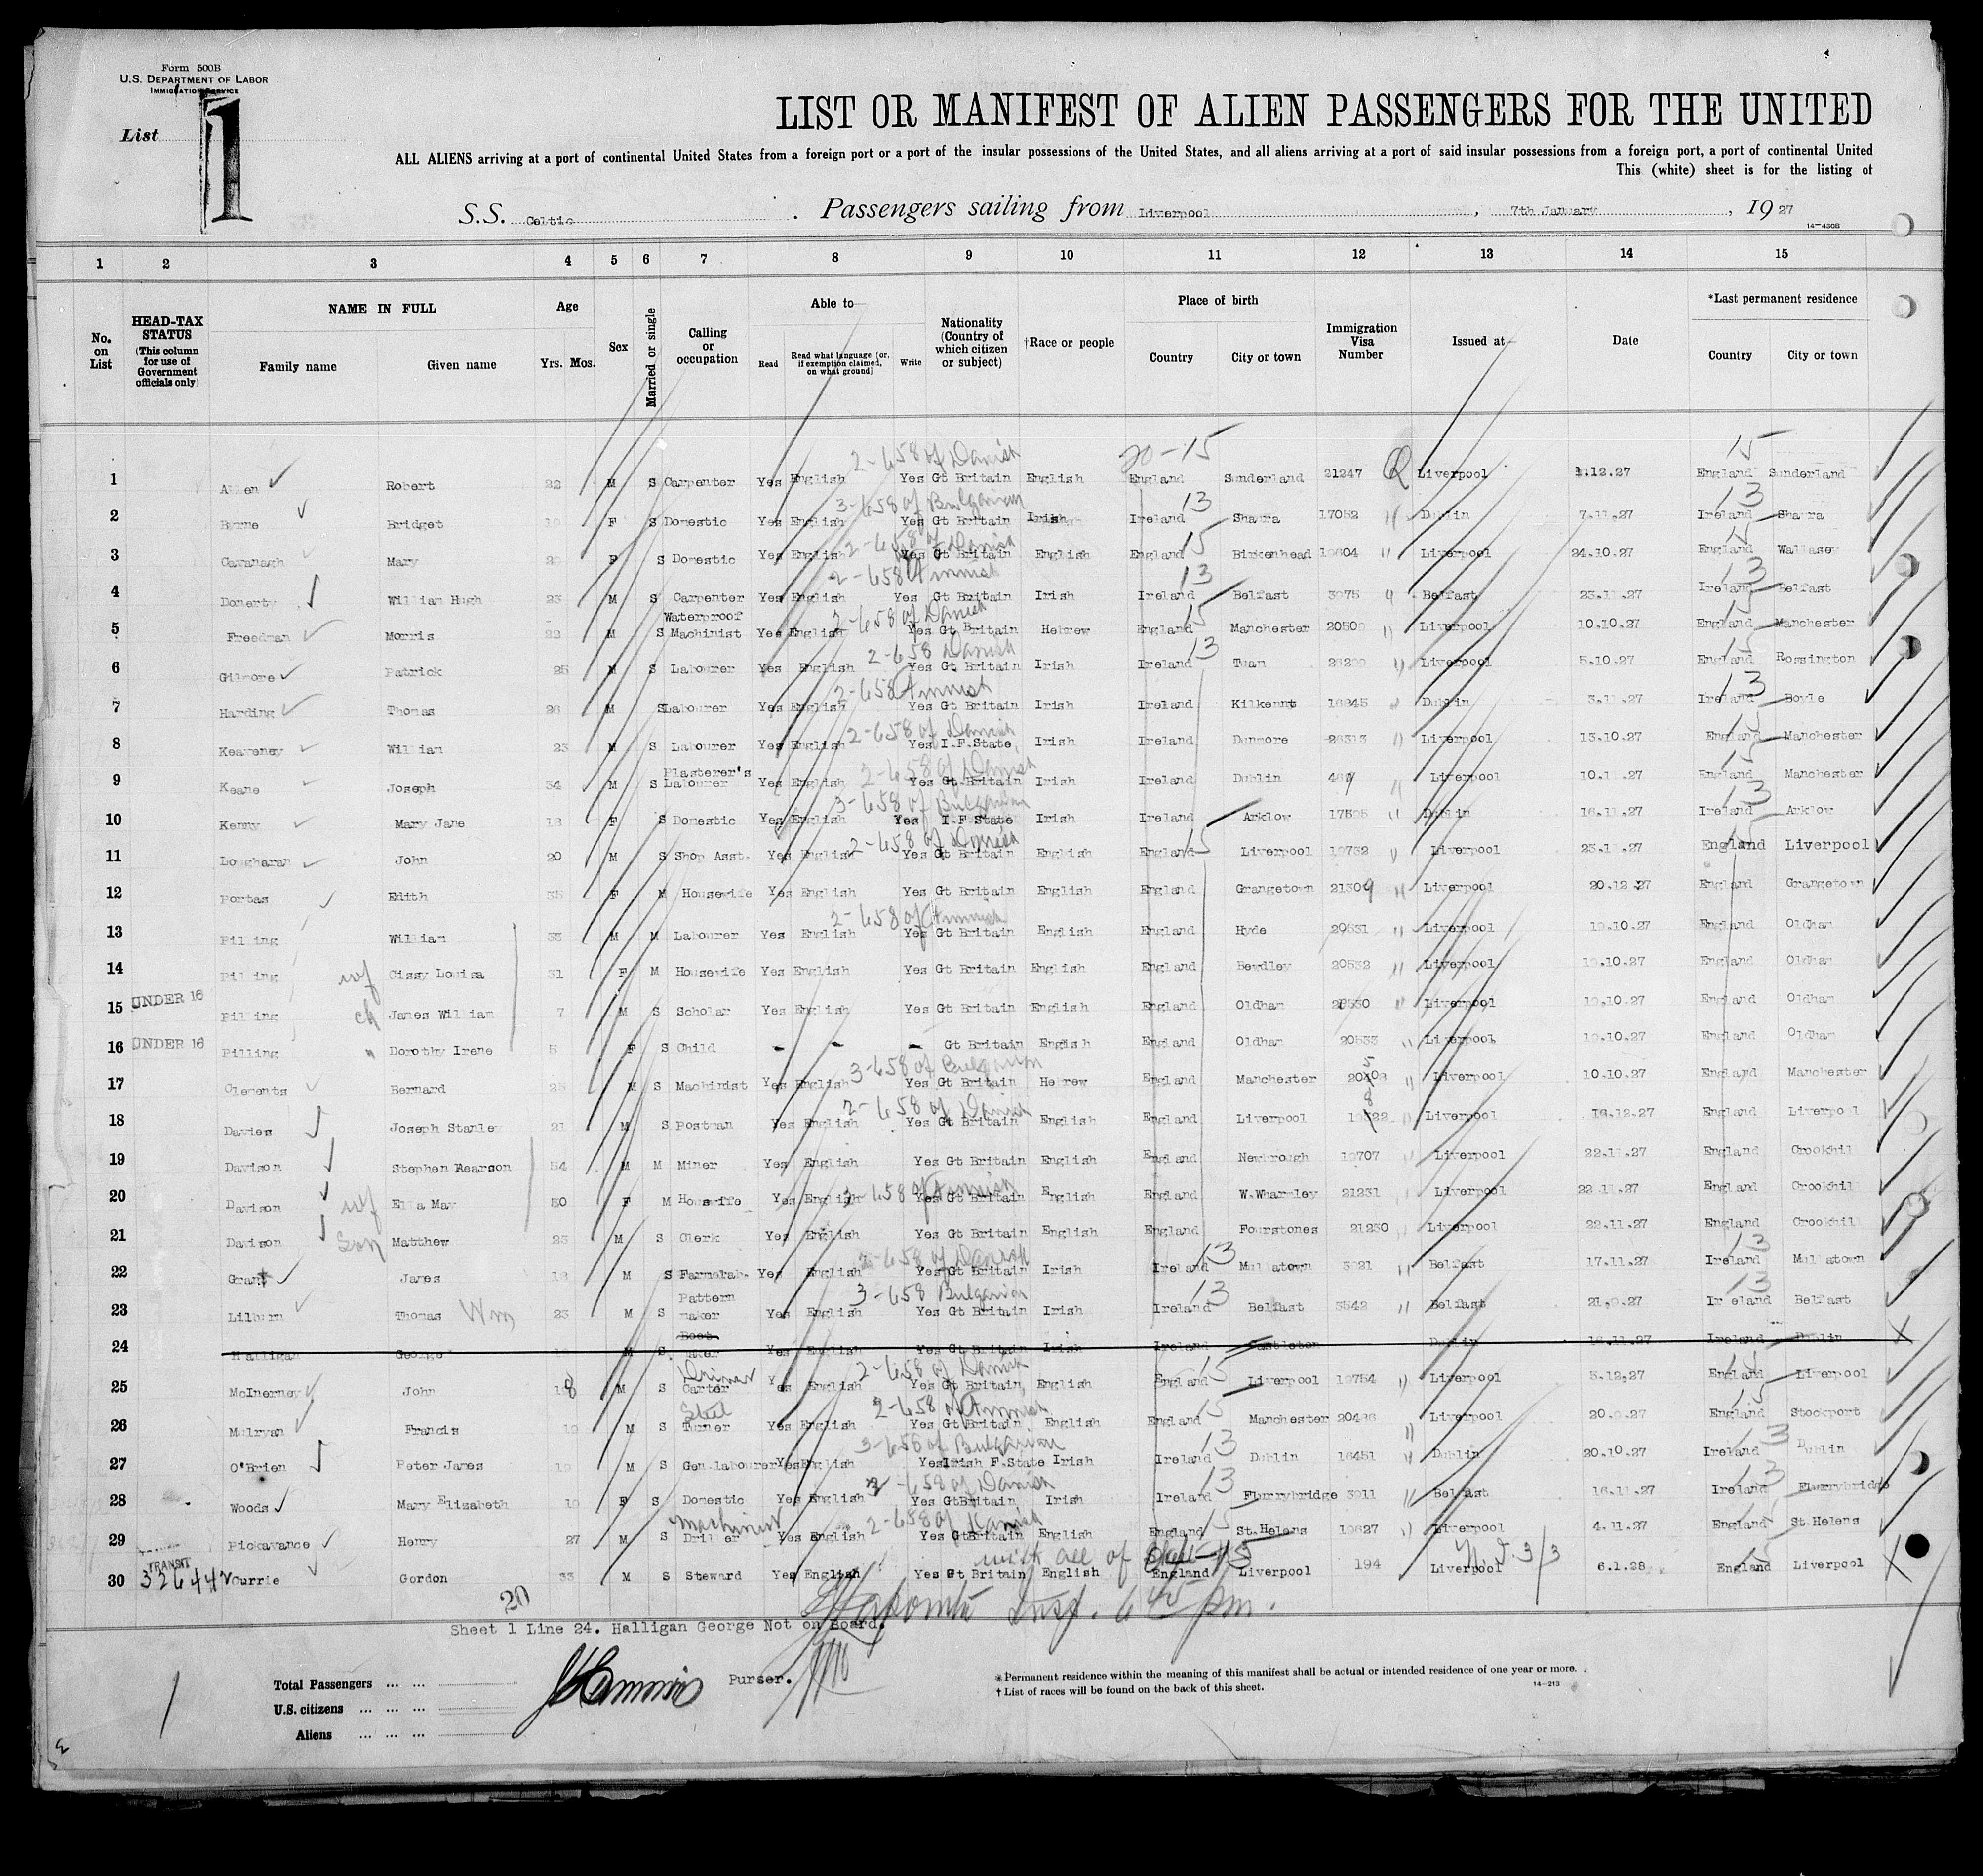 Form 500B
U.S. DEPARTMENT OF LABOR
IMMIGRATION SERVICE
List 1
LIST OR MANIFEST OF ALIEN PASSENGERS FOR THE UNITED
ALL ALIENS arriving at a port of continental United States from a foreign port or a port of the insular possessions of the United States, and all aliens arriving at a port of said insular possessions from a foreign port, a port of continental United
This (white) sheet is for the listing of
S.S. Celtic . Passengers sailing from Liverpool , 7th January , 1927
14-430B
1 2 3 4 5 6 7 8 9 10 11 12 13 14 15
No. on List
HEAD-TAX STATUS (This column for use of Government officials only)
NAME IN FULL Family name Given name
Age Yrs. Mos.
Sex
Married or single
Calling or occupation
Able to— Read Read what language [or, if exemption claimed, on what ground] Write
Nationality (Country of which citizen or subject)
†Race or people
Place of birth Country City or town
Immigration Visa Number
Issued at—
Date
*Last permanent residence Country City or town
2-658 of Danish 20-15 15
1 Allen Robert 22 M S Carpenter Yes English Yes Gt Britain English England Sunderland 21247 Q Liverpool 12.27 England Sunderland
3-658 of Bulgarian 13 13
2 Byrne Bridget F S Domestic Yes English Yes Gt Britain Irish Ireland 17052 " Dublin 7.11.27 Ireland
2-658 of Danish 15 15
3 Cavanagh Mary F S Domestic Yes English Yes Gt Britain English England Birkenhead " Liverpool 24.10.27 England Wallasey
2-658 13 13
4 Doherty William Hugh 23 M S Carpenter Yes English Yes Gt Britain Irish Ireland Belfast 3975 " Belfast 23.11.27 Ireland Belfast
2-658 of Danish 15 15
5 Freedman Morris 22 M S Waterproof Machinist Yes English Yes Gt Britain Hebrew England Manchester 20509 " Liverpool 10.10.27 England Manchester
2-658 Danish 13 15
6 Gilmore Patrick 25 M S Labourer Yes English Yes Gt Britain Irish Ireland Tuam " Liverpool 5.10.27 England Rossington
2-658 13
7 Harding Thomas 26 M S Labourer Yes English Yes Gt Britain Irish Ireland Kilkennt 16845 " Dublin 3.11.27 Ireland Boyle
2-658 of Danish 15
8 Keaveney William 23 M S Labourer Yes English Yes I.F.State Irish Ireland Dunmore " Liverpool 13.10.27 England Manchester
2-658 of Danish 15
9 Keane Joseph 34 M S Plasterer's Labourer Yes English Yes Gt Britain Irish Ireland Dublin " Liverpool 10.1 .27 England Manchester
3-658 of Bulgarian 13
10 Kenny Mary Jane 18 F S Domestic Yes English Yes I.F State Irish Ireland Arklow " Dublin 16.11.27 Ireland Arklow
2-658 of Danish 15 15
11 Lougharan John 20 M S Shop Asst. Yes English Yes Gt Britain English England Liverpool 19732 " Liverpool 23.1 .27 England Liverpool
12 Portas Edith 35 F M Housewife Yes English Yes Gt Britain English England Grangetown 21309 " Liverpool 20.12.27 England Grangetown
2-658 of
13 Pilling William 33 M M Labourer Yes English Yes Gt Britain English England Hyde 20531 " Liverpool 19.10.27 England Oldham
14 Pilling wf Cissy Louisa 31 F M Housewife Yes English Yes Gt Britain English England Bewdley 20532 " Liverpool 19.10.27 England Oldham
15 UNDER 16 Pilling ch James William 7 M S Scholar Yes English Yes Gt Britain English England Oldham 20530 " Liverpool 19.10.27 England Oldham
16 UNDER 16 Pilling " Dorothy Irene 5 F S Child - - - Gt Britain English England Oldham 20533 " Liverpool 19.10.27 England Oldham
3-658 of Bulgarian
17 Clements Bernard M S Machinist Yes English Yes Gt Britain Hebrew England Manchester " Liverpool 10.10.27 England Manchester
2-658 of Danish
18 Davies Joseph Stanley 21 M S Postman Yes English Yes Gt Britain English England Liverpool Liverpool 16.12.27 England Liverpool
19 Davison Stephen Pearson 54 M M Miner Yes English Yes Gt Britain English England Newbrough 19707 Liverpool 22.11.27 England Crookhill
20 Davison wf Ella May 50 F M Housewife Yes English Yes Gt Britain English England W.Wharmley 21231 Liverpool 22.11.27 England Crookhill
21 Davison Son Matthew 23 M S Clerk Yes English Yes Gt Britain English England Fourstones 21230 Liverpool 22.11.27 England Crookhill
2-658 of Danish 13 13
22 Grant James 18 M S Farmerlab. Yes English Yes Gt Britain Irish Ireland 3921 " Belfast 17.11.27 Ireland
3-658 Bulgarian 13 13
23 Lilburn Thomas Wm 23 M S Pattern maker Yes English Yes Gt Britain Irish Ireland Belfast 3542 " Belfast 21.9.27 Ireland Belfast
24 Halligan George M S Boot maker Yes English Yes Gt Britain Irish Ireland Castleton Dublin 18.11.27 Ireland Dublin X
2-658 of Danish 15 15
25 McInerney John 18 M S Driver Carter Yes English Yes Gt Britain English England Liverpool 19754 " Liverpool 5.12.27 England Liverpool
2-658 of 15 15
26 Mulryan Francis 19 M S Steel Turner Yes English Yes Gt Britain English England Manchester " Liverpool 20.9.27 England Stockport
3-658 of Bulgarian 13 13
27 O'Brien Peter James 19 M S Gen.labourer Yes English Yes Irish F.State Irish Ireland Dublin 16451 " Dublin 20.10.27 Ireland Dublin
2-658 of Danish 13 13
28 Woods Mary Elizabeth 19 F S Domestic Yes English Yes GtBritain Irish Ireland Flurrybridge 3911 " Belfast 16.11.27 Ireland Flurrybridge
2-658 of Danish 15 15
29 Pickavance Henry 27 M S Machinist Driller Yes English Yes GtBritain English England St.Helens 19627 " Liverpool 4.11.27 England St.Helens
with all of 15
30 TRANSIT 326442 Currie Gordon 33 M S Steward Yes English Yes Gt Britain English England Liverpool 194 Liverpool 6.1.28 England Liverpool X
29 Insp. 6 45 pm.
Sheet 1 Line 24. Halligan George Not on Board.
Purser.
Total Passengers ... ...
U.S. citizens ... ... ...
Aliens ... ... ...
* Permanent residence within the meaning of this manifest shall be actual or intended residence of one year or more.
† List of races will be found on the back of this sheet.
14-213